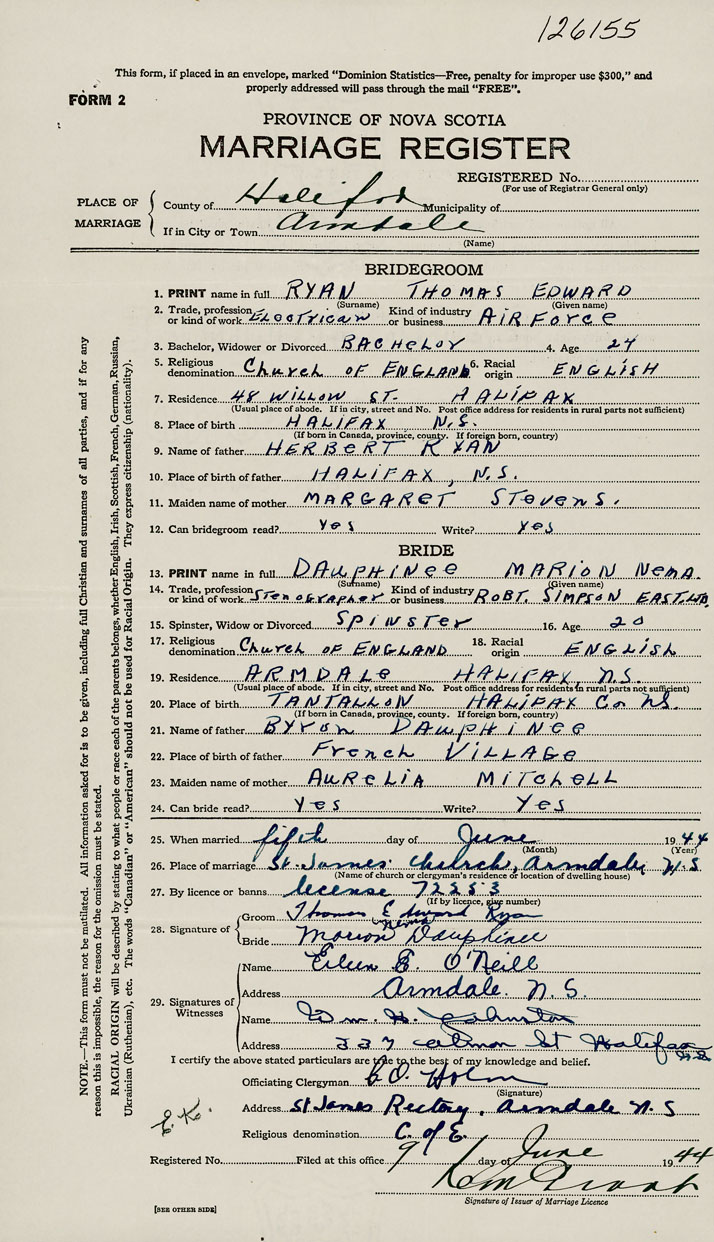 126155
This form, if placed in an envelope, marked "Dominion Statistics—Free, penalty for improper use $300," and
properly addressed will pass through the mail "FREE".
FORM 2
PROVINCE OF NOVA SCOTIA
MARRIAGE REGISTER
REGISTERED No.
(For use of Registrar General only)
PLACE OF MARRIAGE
County of Halifax Municipality of
If in City or Town Armdale
(Name)
BRIDEGROOM
1. PRINT name in full RYAN THOMAS EDWARD
(Surname) (Given name)
2. Trade, profession or kind of work Electrician Kind of industry or business AIR FORCE
3. Bachelor, Widower or Divorced BACHELOR 4. Age 24
5. Religious denomination Church OF ENGLAND 6. Racial origin ENGLISH
7. Residence 48 WILLOW ST. HALIFAX
(Usual place of abode. If in city, street and No. Post office address for residents in rural parts not sufficient)
8. Place of birth HALIFAX N.S.
(If born in Canada, province, county. If foreign born, country)
9. Name of father HERBERT RYAN
10. Place of birth of father HALIFAX, N.S.
11. Maiden name of mother MARGARET STEVENS.
12. Can bridegroom read? Yes Write? Yes
BRIDE
13. PRINT name in full DAUPHINEE MARION NEMA.
(Surname) (Given name)
14. Trade, profession or kind of work Stenographer Kind of industry or business ROBT. SIMPSON EAST. LTD.
15. Spinster, Widow or Divorced SPINSTER 16. Age 20
17. Religious denomination Church OF ENGLAND 18. Racial origin ENGLISH
19. Residence ARMDALE HALIFAX, N.S.
(Usual place of abode. If in city, street and No. Post office address for residents in rural parts not sufficient)
20. Place of birth TANTALLON HALIFAX Co. N.S.
(If born in Canada, province, county. If foreign born, country)
21. Name of father BYRON DAUPHINEE
22. Place of birth of father French VILLAGE
23. Maiden name of mother AURELIA MITCHELL
24. Can bride read? Yes Write? Yes
25. When married fifth day of June 1944
(Month) (Year)
26. Place of marriage St. James Church, Armdale, N.S
(Name of church or clergyman's residence or location of dwelling house)
27. By licence or banns license 72253
(If by licence, give number)
28. Signature of
Groom Thomas Edward Ryan
Bride Marion Nema Dauphinee
29. Signatures of Witnesses
Name Eileen E. O'Neill
Address Armdale. N.S.
Name Wm. H. Johnston
Address 337 St Halifax N.S.
I certify the above stated particulars are true to the best of my knowledge and belief.
Officiating Clergyman Holm
(Signature)
Address St James Rectory, Armdale N.S
Religious denomination C. of E.
E.K.
Registered No. Filed at this office 9 day of June 1944
Signature of Issuer of Marriage Licence
[SEE OTHER SIDE]
NOTE.—This form must not be mutilated. All information asked for is to be given, including full Christian and surnames of all parties, and if for any
reason this is impossible, the reason for the omission must be stated.
RACIAL ORIGIN will be described by stating to what people or race each of the parents belongs, whether English, Irish, Scottish, French, German, Russian,
Ukrainian (Ruthenian), etc. The words "Canadian" or "American" should not be used for Racial Origin. They express citizenship (nationality).